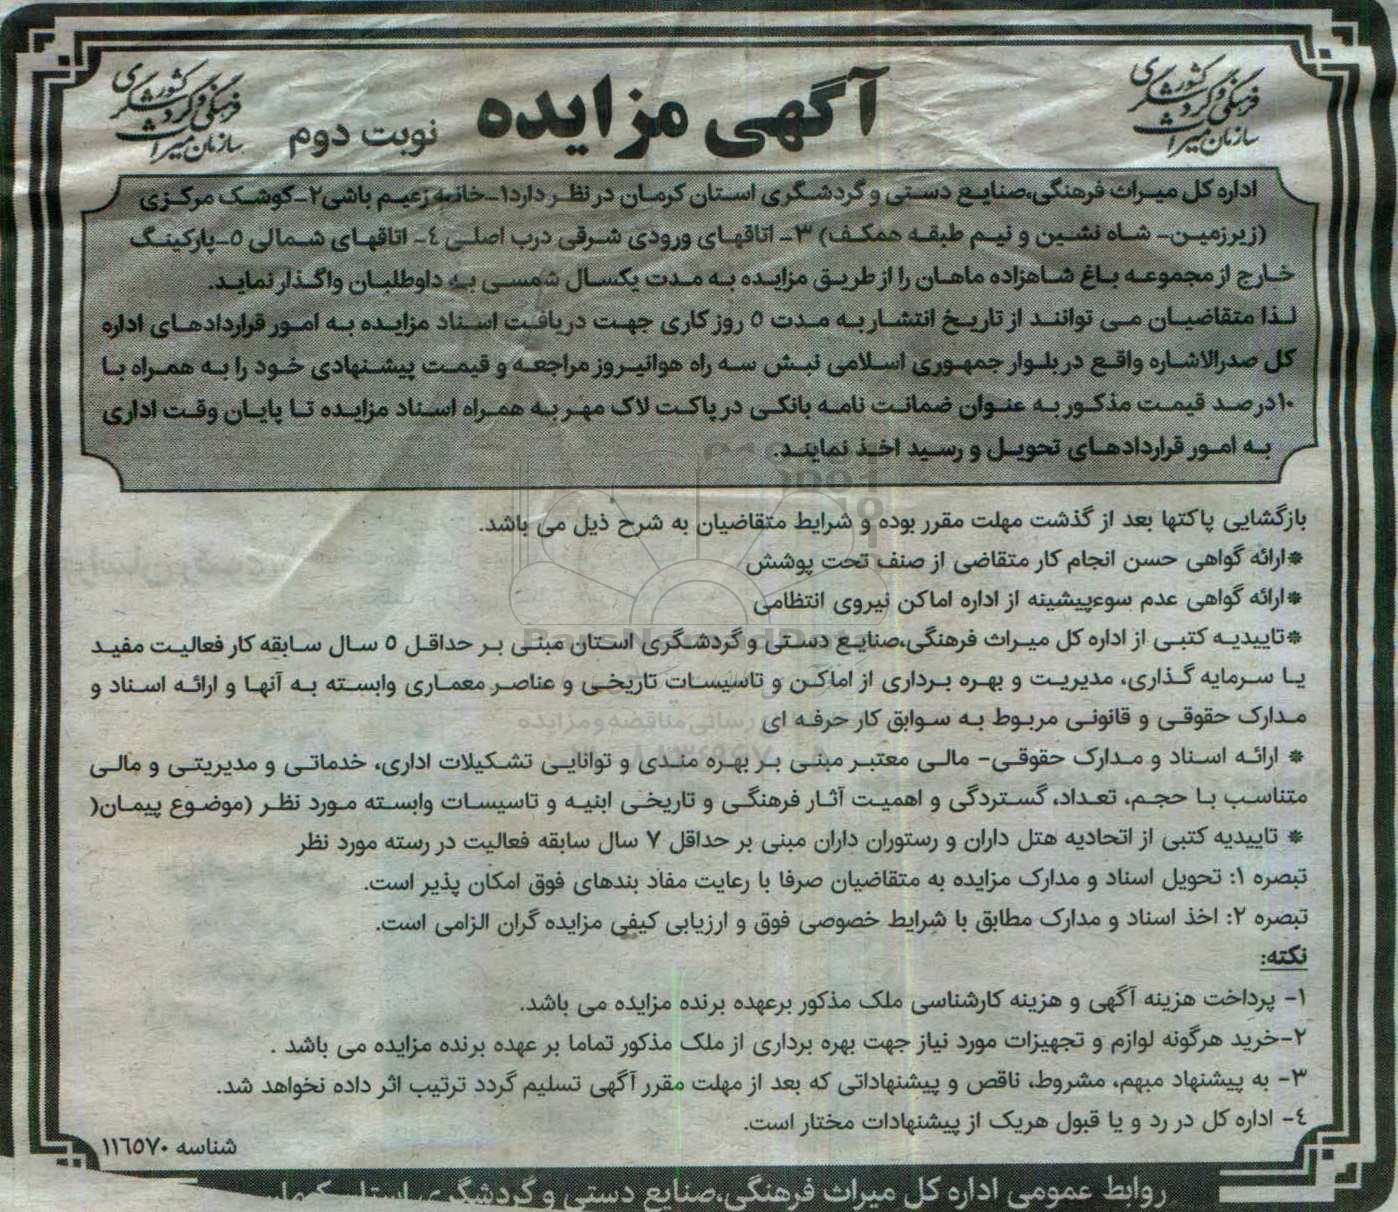 سازمان میراث فرهنگی و گردشگری کشور
آگهی مزایده
نوبت دوم
سازمان میراث فرهنگی و گردشگری کشور
اداره کل میراث فرهنگی،صنایع دستی و گردشگری استان کرمان در نظر دارد۱-خانه زعیم باشی۲-کوشک مرکزی
(زیرزمین- شاه نشین و نیم طبقه همکف) ۳- اتاقهای ورودی شرقی درب اصلی ٤- اتاقهای شمالی ٥-پارکینگ
خارج از مجموعه باغ شاهزاده ماهان را از طریق مزایده به مدت یکسال شمسی به داوطلبان واگذار نماید.
لذا متقاضیان می توانند از تاریخ انتشار به مدت ٥ روز کاری جهت دریافت اسناد مزایده به امور قراردادهای اداره
کل صدرالاشاره واقع در بلوار جمهوری اسلامی نبش سه راه هوانیروز مراجعه و قیمت پیشنهادی خود را به همراه با
۱۰درصد قیمت مذکور به عنوان ضمانت نامه بانکی در پاکت لاک مهر به همراه اسناد مزایده تا پایان وقت اداری
به امور قراردادهای تحویل و رسید اخذ نمایند.
بازگشایی پاکتها بعد از گذشت مهلت مقرر بوده و شرایط متقاضیان به شرح ذیل می باشد.
*ارائه گواهی حسن انجام کار متقاضی از صنف تحت پوشش
*ارائه گواهی عدم سوءپیشینه از اداره اماکن نیروی انتظامی
*تاییدیه کتبی از اداره کل میراث فرهنگی،صنایع دستی و گردشگری استان مبنی بر حداقل ٥ سال سابقه کار فعالیت مفید
یا سرمایه گذاری، مدیریت و بهره برداری از اماکن و تاسیسات تاریخی و عناصر معماری وابسته به آنها و ارائه اسناد و
مدارک حقوقی و قانونی مربوط به سوابق کار حرفه ای
* ارائه اسناد و مدارک حقوقی- مالی معتبر مبنی بر بهره مندی و توانایی تشکیلات اداری، خدماتی و مدیریتی و مالی
متناسب با حجم، تعداد، گستردگی و اهمیت آثار فرهنگی و تاریخی ابنیه و تاسیسات وابسته مورد نظر (موضوع پیمان(
* تاییدیه کتبی از اتحادیه هتل داران و رستوران داران مبنی بر حداقل ۷ سال سابقه فعالیت در رسته مورد نظر
تبصره ۱: تحویل اسناد و مدارک مزایده به متقاضیان صرفا با رعایت مفاد بندهای فوق امکان پذیر است.
تبصره ۲: اخذ اسناد و مدارک مطابق با شرایط خصوصی فوق و ارزیابی کیفی مزایده گران الزامی است.
نکته:
۱- پرداخت هزینه آگهی و هزینه کارشناسی ملک مذکور برعهده برنده مزایده می باشد.
۲-خرید هرگونه لوازم و تجهیزات مورد نیاز جهت بهره برداری از ملک مذکور تماما بر عهده برنده مزایده می باشد .
۳- به پیشنهاد مبهم، مشروط، ناقص و پیشنهاداتی که بعد از مهلت مقرر آگهی تسلیم گردد ترتیب اثر داده نخواهد شد.
٤- اداره کل در رد و یا قبول هریک از پیشنهادات مختار است.
شناسه ۱۱٦٥۷۰
روابط عمومی اداره کل میراث فرهنگی،صنایع دستی و گردشگری استان کرمان